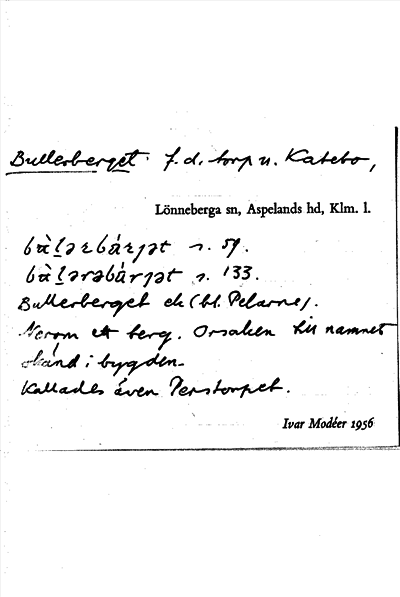 Bullerberget f.d. torp u. Katebo,
Lönneberga sn, Aspelands hd, Klm. l.
s. 59.
s. 133.
Bullerberget ek (bl. Pelarne).
Norom ett berg. Orsaken till namnet
okänd i bygden.
Kallades även Perstorpet.
Ivar Modéer 1956